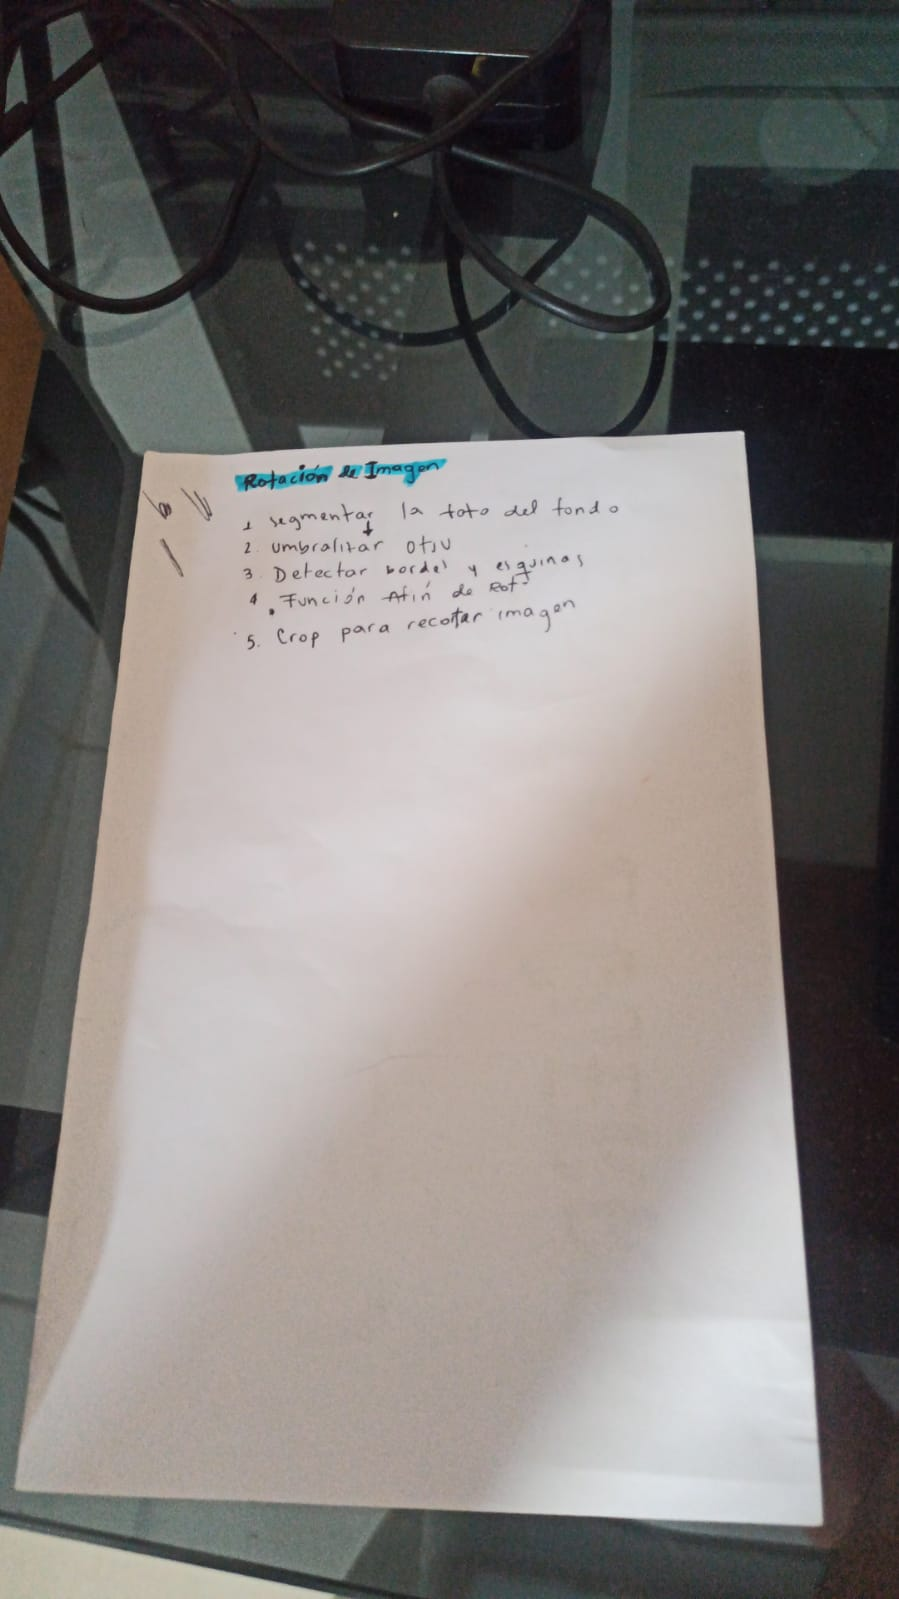 Rotación de Imagen
1 segmentar la foto del fondo
2. Umbralizar otsu
3. Detectar bordes y esquinas
4. Función Afín de Rot.
5. Crop para recortar imagen